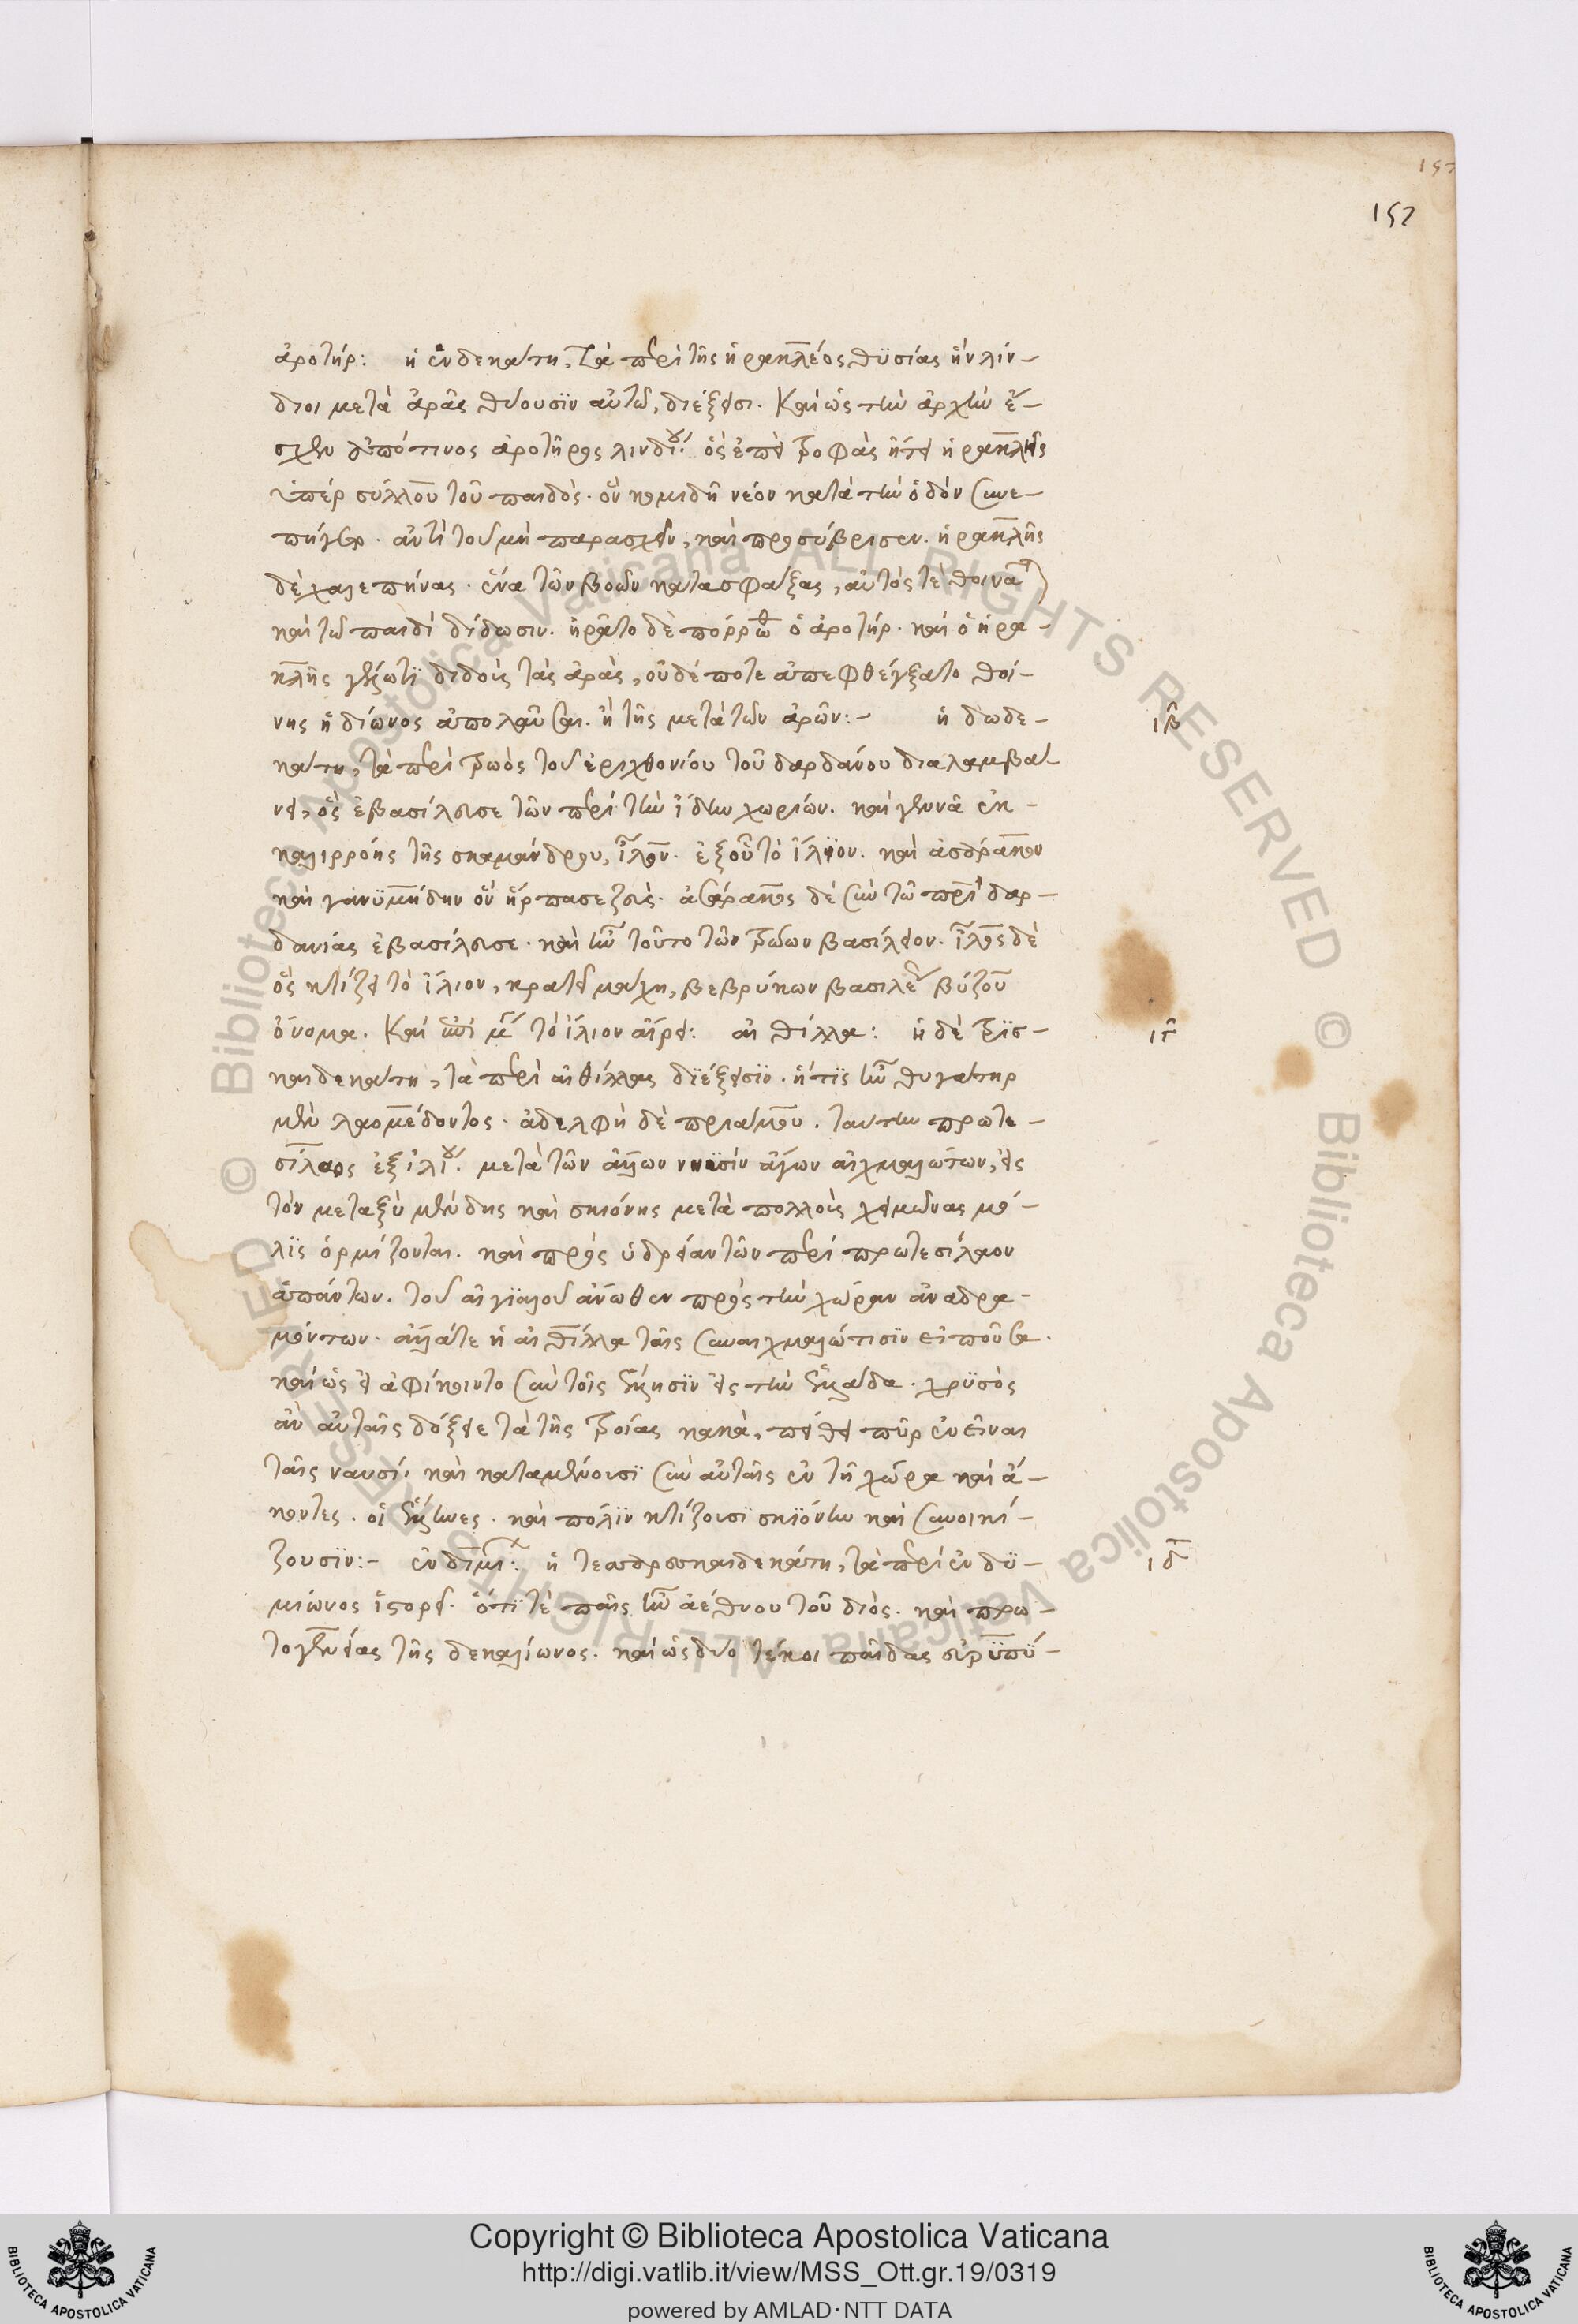 157
157
ἀροτήρ: ἡ ἑνδεκάτη, τὰ περὶ τῆς ἡρακλέος θυσίας ἣν λίν-
διοι μετὰ ἀρᾶς θύουσϊν αὐτῶ, διέξεισι. Καὶ ὡς τὴν ἀρχὴν ἔ-
σχεν ἀπό τινος ἀροτῆρος λινδίου. ὃς ἐπεὶ τροφὰς ἤτει ἡρακλῆς
ὑπὲρ σύλλου τοῦ παιδὸς. ὃν κομιδῆ νέον κατὰ τὴν ὁδόν συνε-
πήγετο. ἀντὶ τοῦ μὴ παρασχεῖν, καὶ προσύβρισεν. ἡρακλῆς
δὲ χαλεπήνας. ἕνα τῶν βοῶν κατασφάξας, αὐτός τὲ θοινᾶται
καὶ τῶ παιδὶ δίδωσιν. ἠρᾶτο δὲ πόρρωθεν ὁ ἀροτήρ. καὶ ὁ ἡρα-
κλῆς γέλωτϊ διδοὺς τὰς ἀρὰς, οὐδέποτε ἀπεφθέγξατο θοί-
νης ἡδίωνος ἀπολαῦσαι. ἢ τῆς μετὰ τῶν ἀρῶν:- ἡ δωδε-
ιβ
κάτη, τὰ περὶ τρωὸς τοῦ ἐριχθονίου τοῦ δαρδάνου διαλαμβά-
νει, ὃς ἐβασίλευσε τῶν περὶ τὴν ἴδην χωρίων. καὶ γεννᾶ ἐκ
καλιρρόης τῆς σκαμάνδρου, ἶλον. ἐξ οὗ τὸ ἴλϊον. καὶ ἀσσάρακον
καὶ γανϋμήδην ὃν ἥρπασε ζεύς. ἀσάρακος δὲ σὺν τῶ πατρὶ δαρ-
δανίας ἐβασίλευσε. καὶ ἦν τοῦτο τῶν τρώων βασίλειον. ἶλος δὲ
ὃς κτίζει τὸ ἴλιον, κρατεῖ μάχη, βεβρύκων βασιλέα βύζου
ὄνομα. Καὶ ἐπὶ μέγα τὸ ἴλιον αἴρει: αἰθίλλα: ἡ δὲ τρϊσ-
ιγ
καιδεκάτη, τὰ περὶ αἰθίλλας διέξεισϊν. ἥτϊς ἦν θυγάτηρ
μὲν λαομέδοντος. ἀδελφὴ δὲ πριάμου. ταύτην πρωτε-
σίλαος ἐξ ἰλίου. μετὰ τῶν ἄλλων νηϋσίν ἄγων αἰχμαλώτων, εἰς
τὸν μεταξὺ μένδης καὶ σκιόνης μετὰ πολλοὺς χειμῶνας μό-
λϊς ὁρμίζονται. καὶ πρὸς ὑδρείαν τῶν περὶ πρωτεσίλαον
ἁπάντων. τοῦ αἰγϊαλοῦ ἄνωθεν πρὸς τὴν χώραν ἀναδρα-
μόντων. ἄλλάτε ἡ αἰθίλλα ταῖς συναιχμαλώτισϊν εἰποῦσα.
καὶ ὡς εἰ ἀφίκοιντο σὺν τοῖς ἕλλησϊν εἰς τὴν ἑλλάδα. χρϋσὸς
ἂν αὐταῖς δόξειε τὰ τῆς τροίας κακὰ, πείθει πῦρ ἐνεῖναι
ταῖς ναυσί. καὶ καταμένουσϊ σὺν αὐταῖς ἐν τῆ χώρα καὶ ἄ-
κοντες. οἱ ἕλληνες. καὶ πόλϊν κτίζουσϊ σκϊόνην καὶ συνοικί-
ζουσϊν:- ἐνδυμίων: ἡ τεσσαρσκαιδεκάτη, τὰ περὶ ἐνδϋ-
ιδ
μίωνος ἱστορεῖ. ὅτϊ τὲ παῖς ἦν ἀέθνου τοῦ διὸς. καὶ πρω-
τογενείας τῆς δεκαλίωνος. καὶ ὡς δύο τέκοι παῖδας εὐρϋπύ-
Copyright © Biblioteca Apostolica Vaticana
http://digi.vatlib.it/view/MSS_Ott.gr.19/0319
powered by AMLAD·NTT DATA